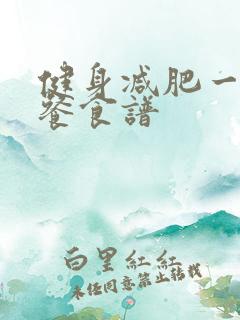 健身减肥一
餐食譜
白里紅紅
未经同意禁止转载